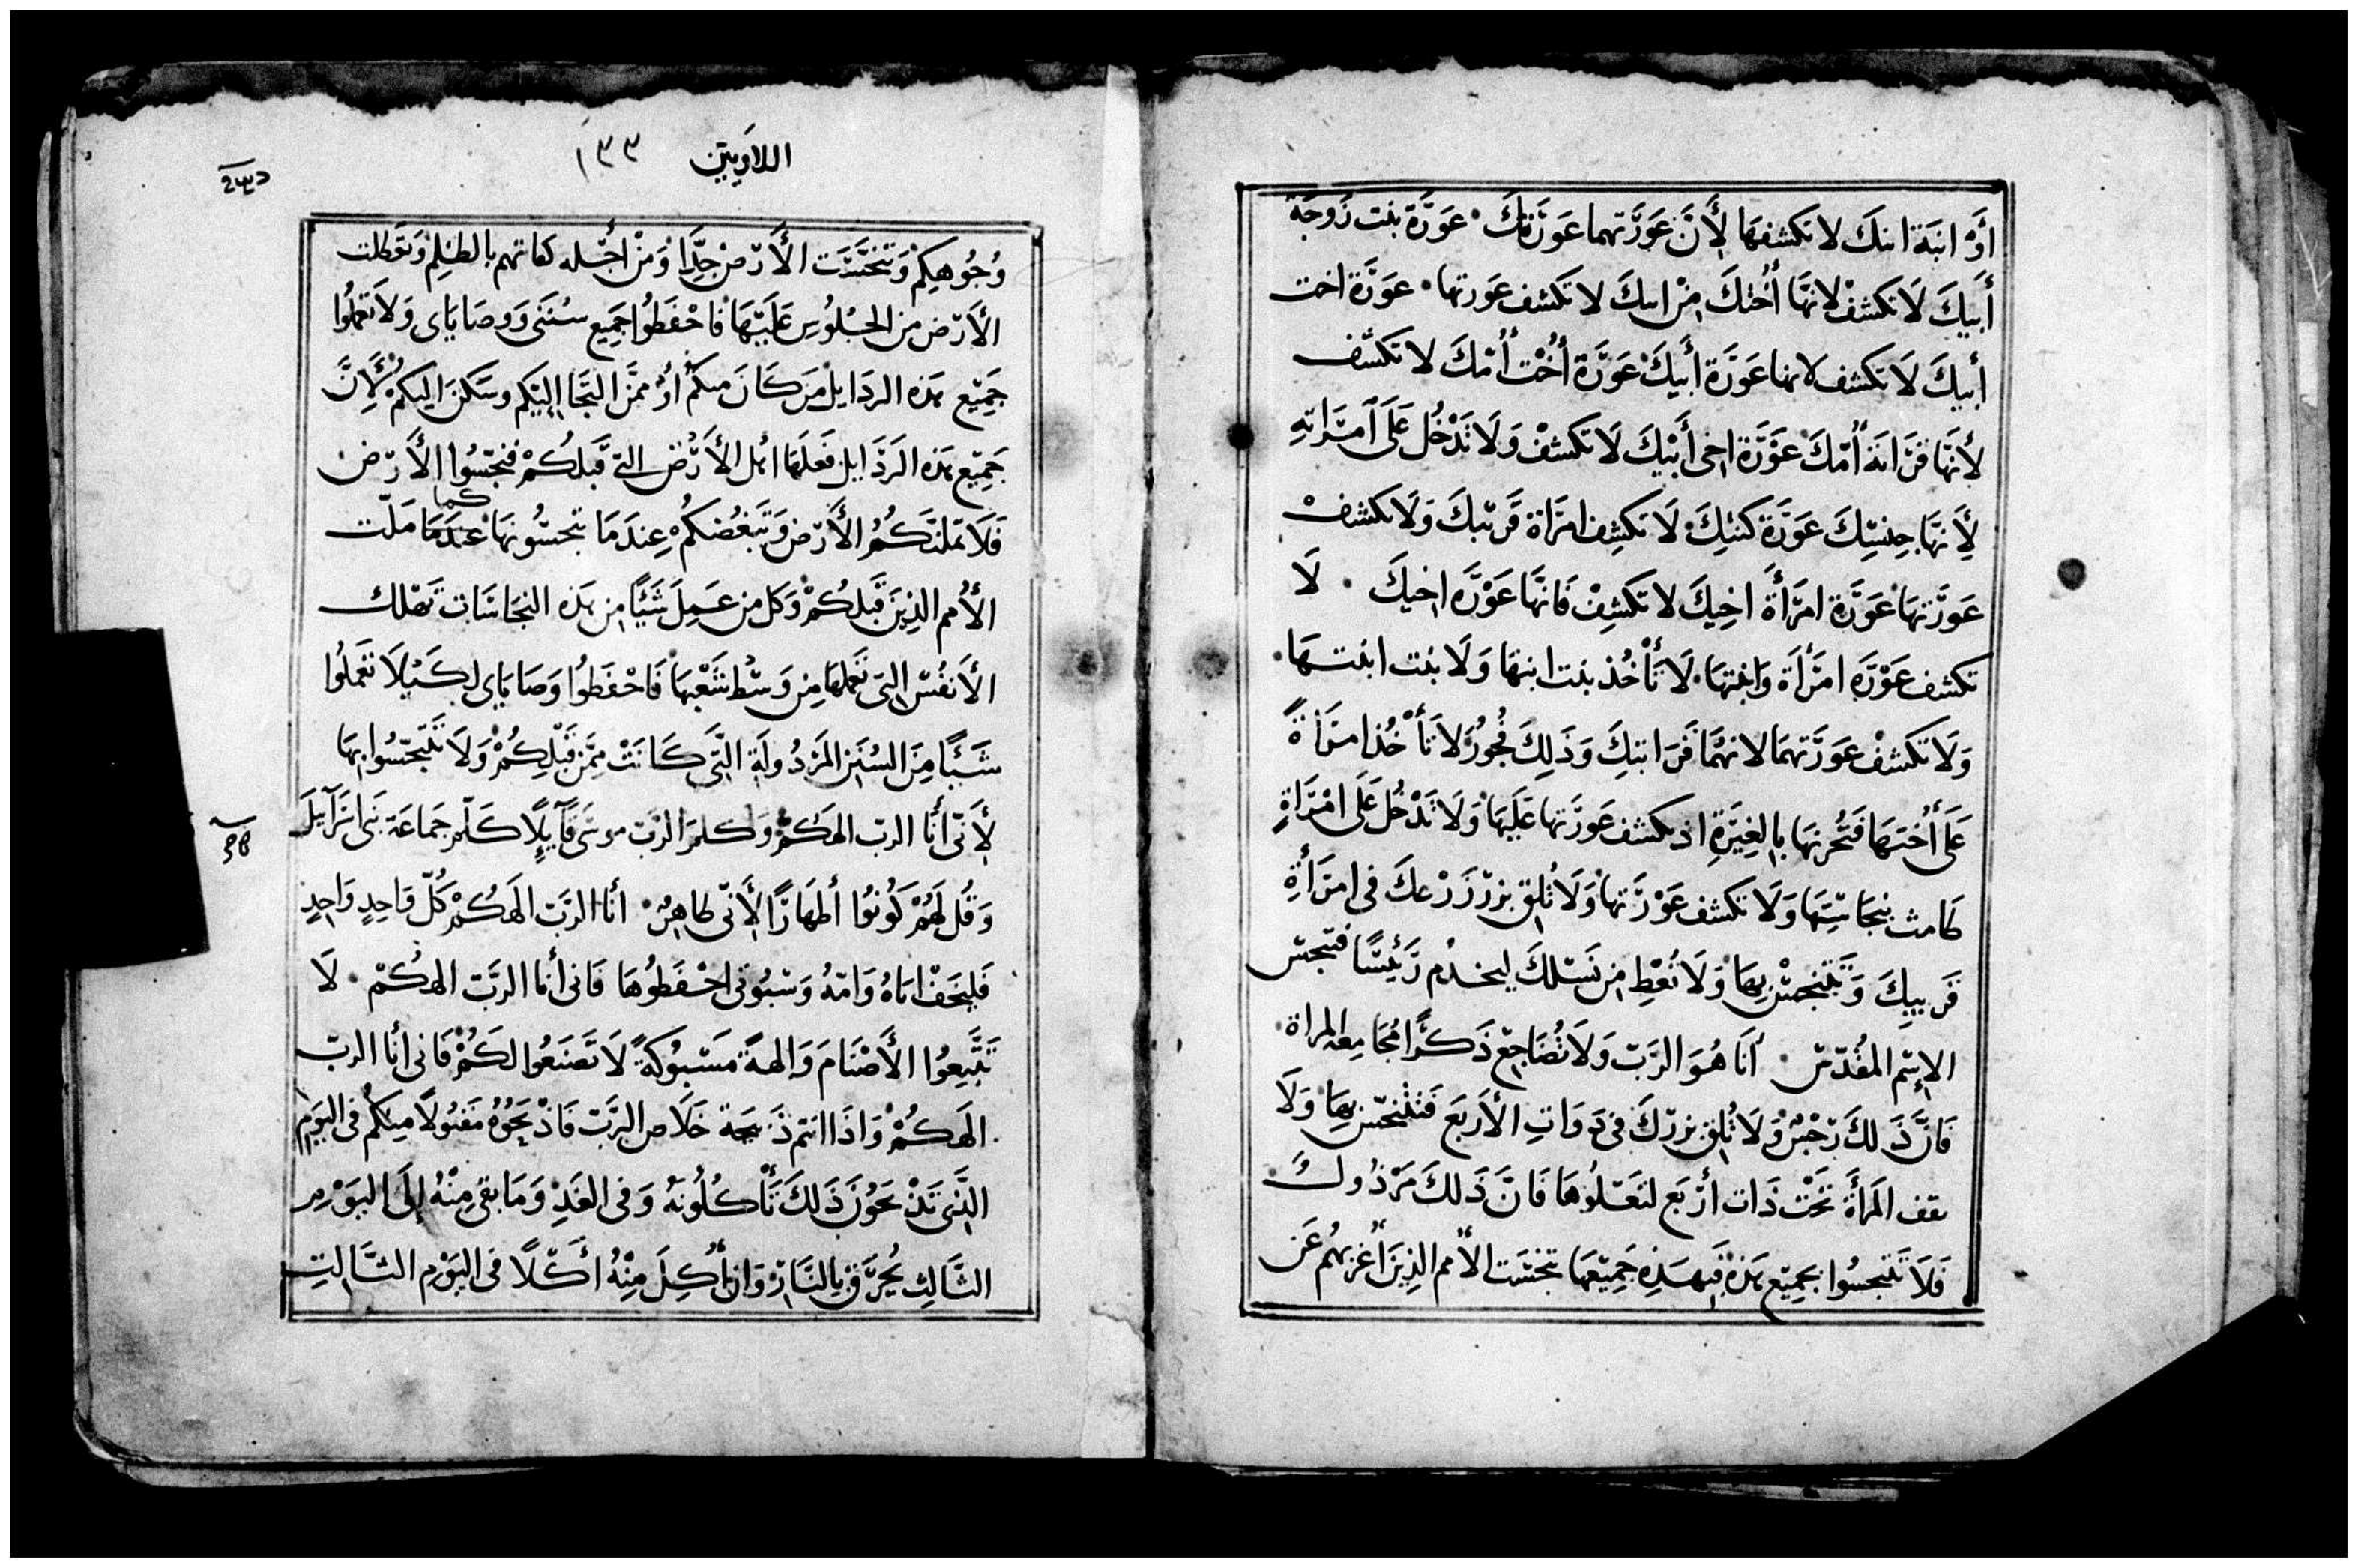 أَوْ ابنَة ابنكَ لا تكشفهَا لِأَنَّ عَوْرَتهما عَورَتكَ · عَوْرَة بنت زَوجَة
أَبيكَ لَا تكشفْ لانهَّا أُختكَ مِنْ ابيكَ لا تكشف عَورتها · عَورَة اخت
أبيكَ لَا تكشف لانها عَورَة أَبيكَ عَورَة أُخت أُمّكَ لا تكشف
لأنهَّا قَرَابَة أُمّكَ عَوْرَة اخي أَبيْكَ لَا تكشفْ وَلَا تَدْخُل عَلَى امرَاتهِ
لِأَنهَّا جنسِكَ عَورَة كنتكَ لَا تكشِف امرَاة قَريبكَ وَلَا تكشفْ
عَورَتهَا عَوْرَة امرَأَة اخِيكَ لا تكشِفْ فَانهَّا عَوْرَه اخيكَ · لَا
تكشف عَوْرَه امرَأَة وَابنتهَا · لَا تَأْخُذ بنت ابنهَا وَلَا بنت ابنتهَا ·
وَلَا تكشفْ عَورَتهمَا لانهمَا قَرَابتكَ وَذَلِكَ فُجُورٌ وَلَا تَأْخُذ امرَأَةً
عَلَى أُختهَا فَتُحزنهَا بِالغِيْرَةِ اذ تكشف عَورَتها عَلَيهَا وَلَا تَدْخُل عَلَى امْرَاةٍ
طَامث بنجَاسَتِهَا وَلَا تكشف عَوْرَتهَا وَلَا تُلقِ بزرْ زَرْعكَ فى امرَأَةِ
قَريبكَ وَتَتنجسْ بِهَا وَلَا تُعْطِ مِن نَسْلكَ ليخدُم رَئيسًا فتنجس
الإِسْم المقُدّسْ · أنَا هُوَ الرَبّ وَلَا تُضَاجِعْ ذَكَرًا مُجَامِعة المراة ·
فَانَّ ذَلكَ رَجْسٌ وَلَا تُلقِ بزرْكَ فى ذَوَاتِ الأَربَعَ فَتتنجّسْ بِهَا وَلَا
تقف المَرأَة تَحْت ذَات أرْبَع لتَعْلُوهَا فَانَّ ذَلكَ مَرْذُولٌ
فَلَا تَتنجسُوا بجمِيْع هَذهْ فَبهَذِهِ جَمِيْعهَا تنجسَت الأُمم الذِينَ أُغَربهُم عَن
اللاويين ١٣٣
وُجُوهِكمْ وَتنجّسَت الأَرْضْ جِدًّا وَمِنْ أجْله كافاتهم بالظلم وَتوكلت
الأَرْض من الجُلُوسِ عَلَيْهَا فَاحْفَظُوا جَمِيع سُنَنى وَوصَايَاى وَلَا تعْملُوا
جَمِيْع هَذه الردَايل مَن كَانَ منكم أوْ ممَّن التَجَا اليْكم وسَكنَ اليكمْ لِأَنَّ
جَمِيْع هَذه الرَذَايل فَعَلهَا اهل الأَرْض التى قَبلكُمْ فنجّسُوا الأَرْض
فَلَا تملنَّكُمُ الأَرْض وَتَبغُضكُمْ عِندَمَا تنجسُّونهَا كما عِندَمَا مَلّت
الأُمم الذِينَ قَبلكُمْ وَكل من عَمِلَ شَيْئًا مِن هَذه النجَاسَات تَهْلك
الأَنفُسْ التى تعَملهَا مِن وَسْط شَعْبهَا فَاحْفَظُوا وَصَايَاى لكَيْلَا تَعْملُوا
شَيْئًا مِنَ السُنَن المَرْذُولَةِ التَّى كَانَتْ مِمَّن قَبْلِكُمْ وَلَا تَتنجّسُوا بهَا
لِأَنّى أنَا الرب الهكُمْ وَكلمَ الرَبّ موسَى قَآيِلًا كَلّم جمَاعَة بَنى اسرَآيلَ
وَقُل لَهُمْ كُونُوا أطهَارًا لِأَنّى طاهِرٌ · أنا الرَبّ الَهكُمْ كُلّ وَاحِدٍ وَاحِدٍ
فَليخَفْ ابَاهُ وَامّهُ وَسْبُوتى احْفَظُوهَا فَانى أنا الرَبّ الهكُمْ · لَا
تَتّبِعُوا الأَصْنَامَ وَالهةً مَسْبُوكَةً لَا تَصْنَعُوا لكُمْ فَانى أنا الربّ
الَهكُمْ وَاذَا انتم ذَبحتم ذبيحة خَلَاص للرَبّ فَاذْبحُوهُ مَقبُولًا منكُمْ فى اليَوم
الذَّى تَذْبحَوُنَ ذَلكَ تَأْكُلُونَهُ وَفى الغَدِ وَمَا بقى مِنْهُ إلَى اليَوْمِ
الثَالِث يُحرَق بالنَّار وَان أُكِلَ مِنْهُ أَكْلًا فى اليَوْم الثَّالِثِ